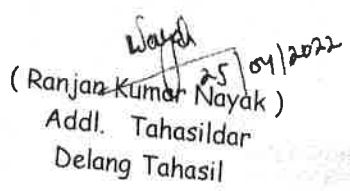 Nayak
25/04/2022
( Ranjan Kumar Nayak )
Addl. Tahasildar
Delang Tahasil